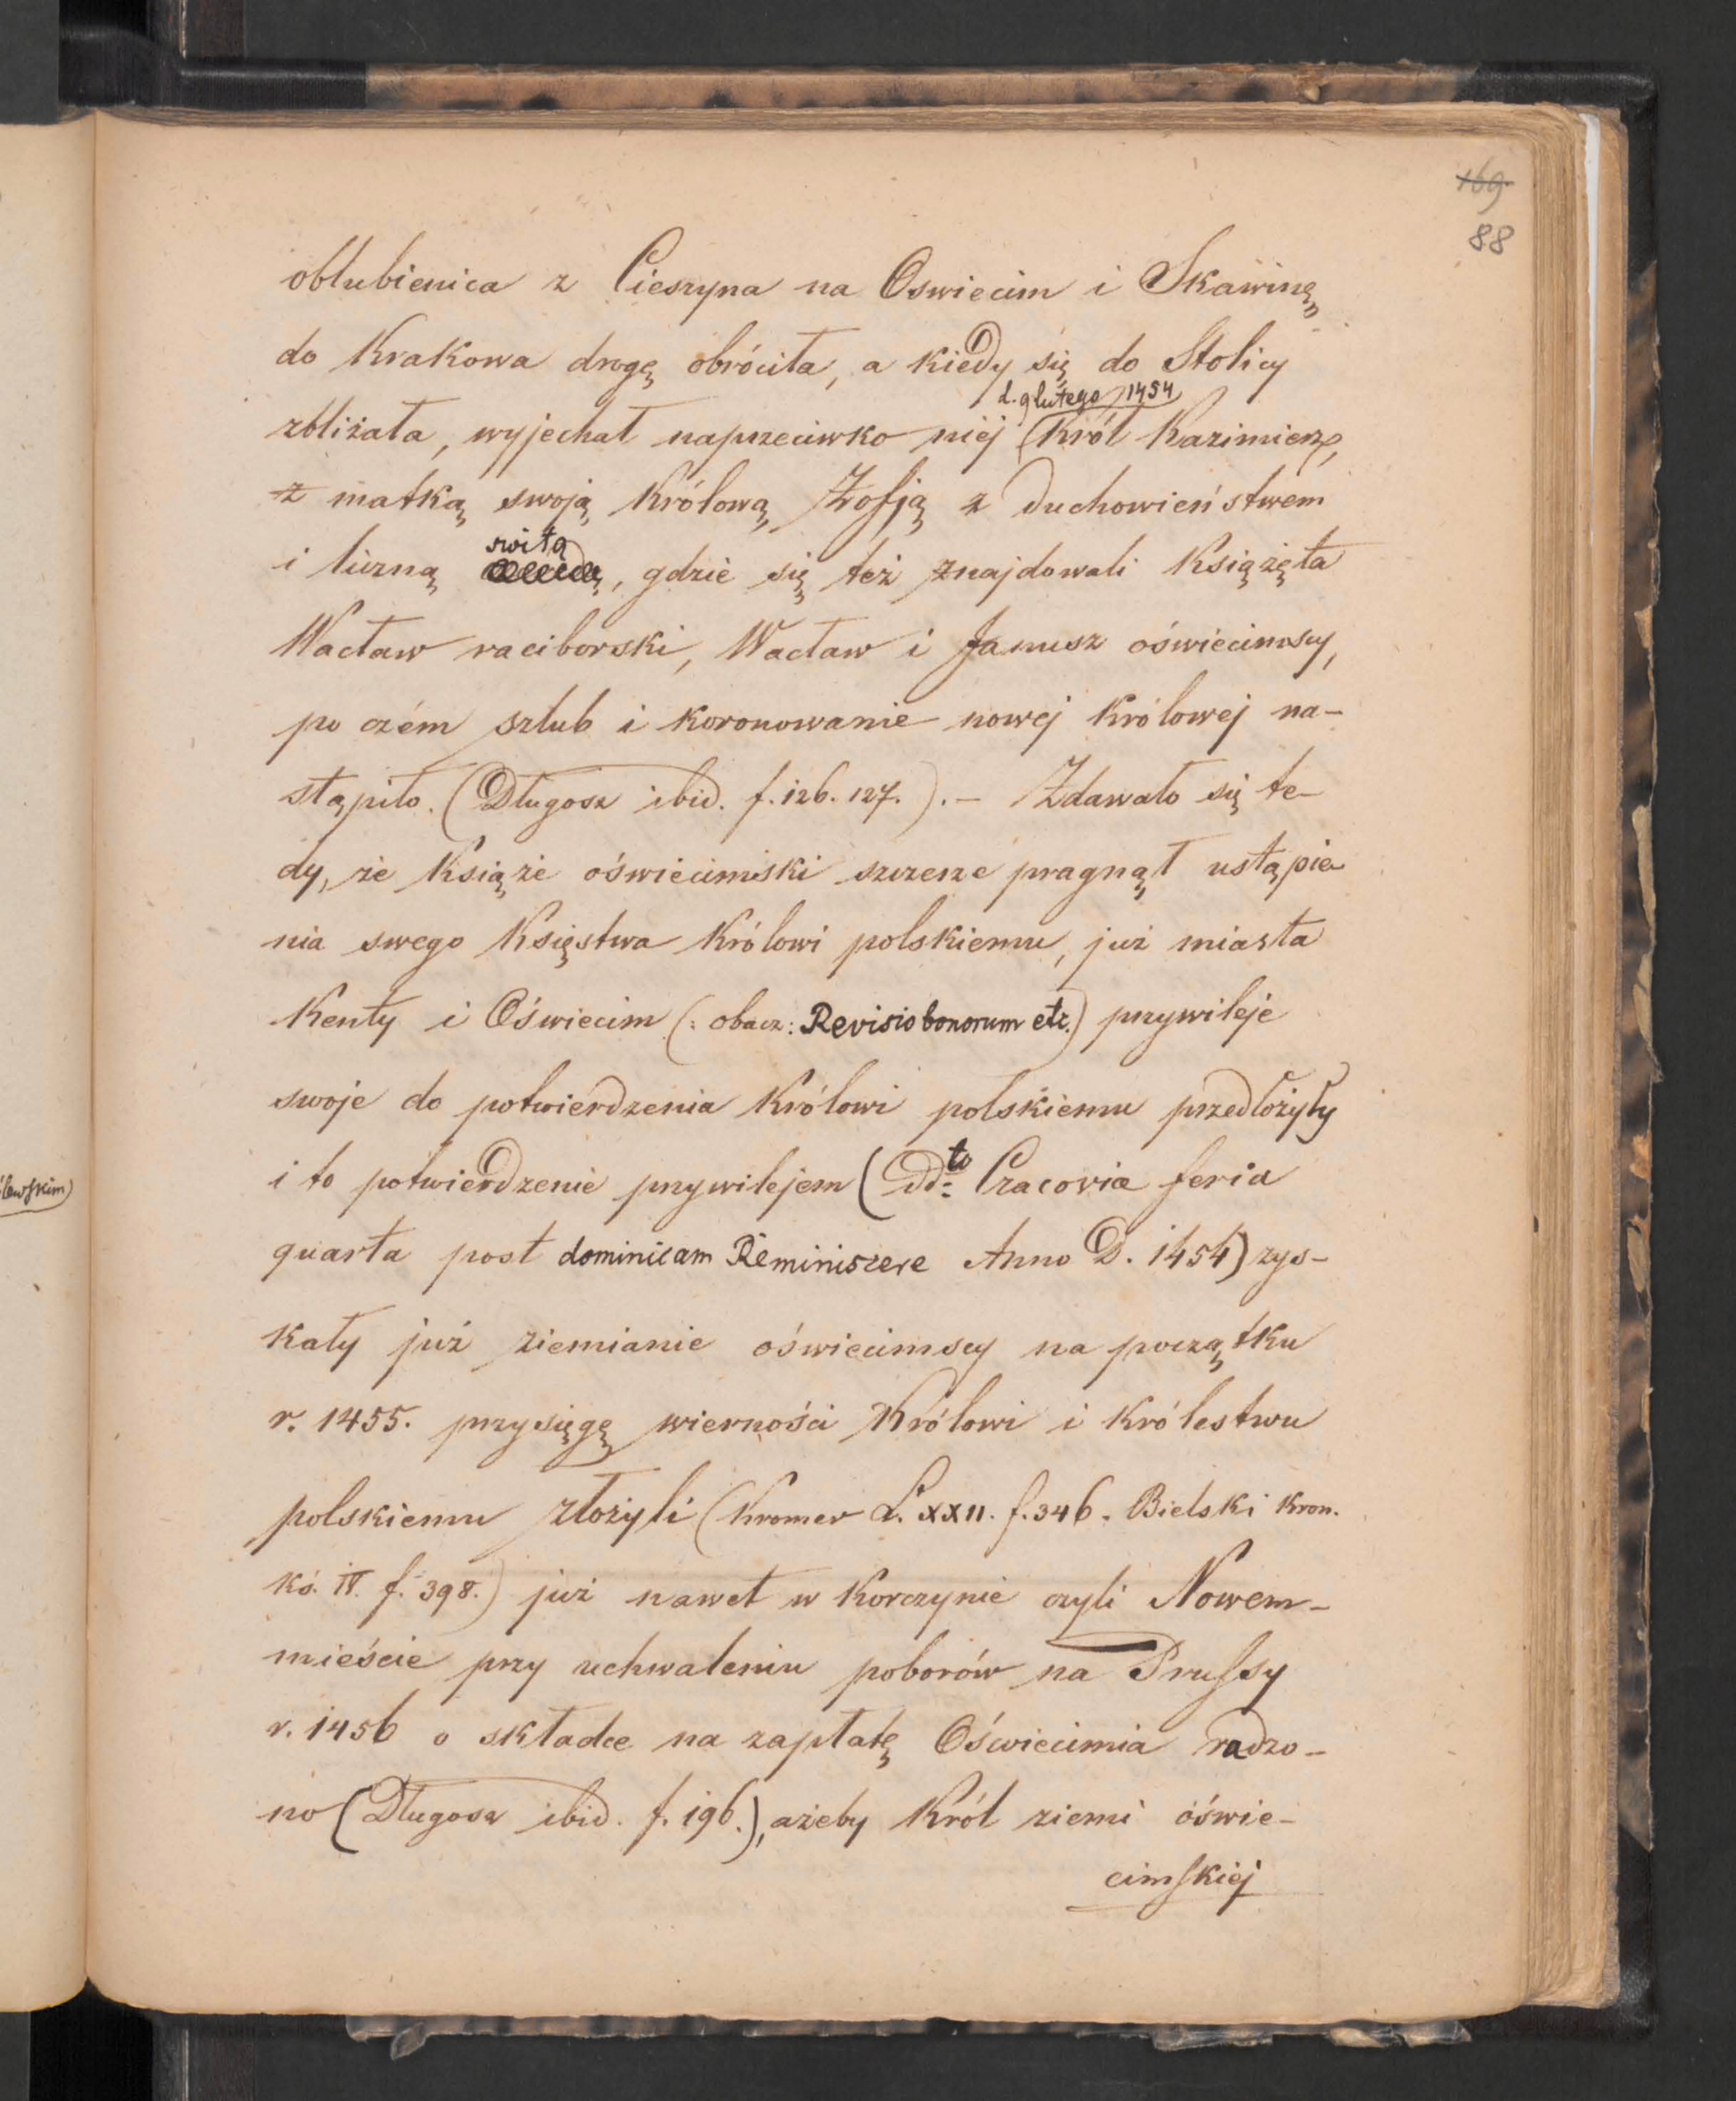 169.
88
oblubienica z Cieszyna na Oswiecim i Skawinę
do Krakowa drogę obróciła, a kiedy się do Stolicy
d. 9 lutego 1454
zbliżała, wyjechał naprzeciwko niéj Król Kazimierz,
z matką swoją Królową Zofją z duchowieństwem
switą
i liczną , gdzie się też znajdowali Książęta
Wacław raciborski, Wacław i Janusz oświecimscy,
po czém szlub i koronowanie nowej Królowej na-
stąpiło. (Długosz ibid. f. 126. 127.). – Zdawało się te-
dy, że Książe oświecimski szczerze pragnął ustąpie-
nia swego Księstwa Królowi polskiemu, już miasta
Kenty i Oświecim (: obacz: Revisio bonorum etc.) przywileje
swoje do potwierdzenia Królowi polskiemu przedłożyły
i to potwierdzenie przywilejem (ddto Cracovia feria
quarta post dominicam Reminiscere Anno D. 1454) zys-
kały już ziemianie oświecimscy na początku
r. 1455. przysięgę wierności Królowi i Królestwu
polskiemu złożyli (Kromer L. XXII. f. 346. Bielski Kron.
kś. IV. f. 398.) już nawet w Korczynie czyli Nowem-
mieście przy uchwaleniu poborów na Prussy
r. 1456 o składce na zapłatę Oświecimia radzo-
no (Długosz ibid. f. 196.), ażeby Król ziemi oświe-
cimskiej
lewskim)